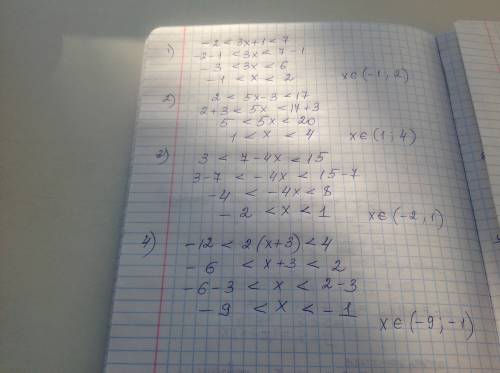 1) -2 < 3x+1 < 7
-2-1 < 3x < 7-1
-3 < 3x < 6
-1 < x < 2 x∈(-1; 2)
2) 2 < 5x-3 < 17
2+3 < 5x < 17+3
5 < 5x < 20
1 < x < 4 x∈(1; 4)
3) 3 < 7-4x < 15
3-7 < -4x < 15-7
-4 < -4x < 8
-2 < x < 1 x∈(-2; 1)
4) -12 < 2(x+3) < 4
-6 < x+3 < 2
-6-3 < x < 2-3
-9 < x < -1 x∈(-9; -1)